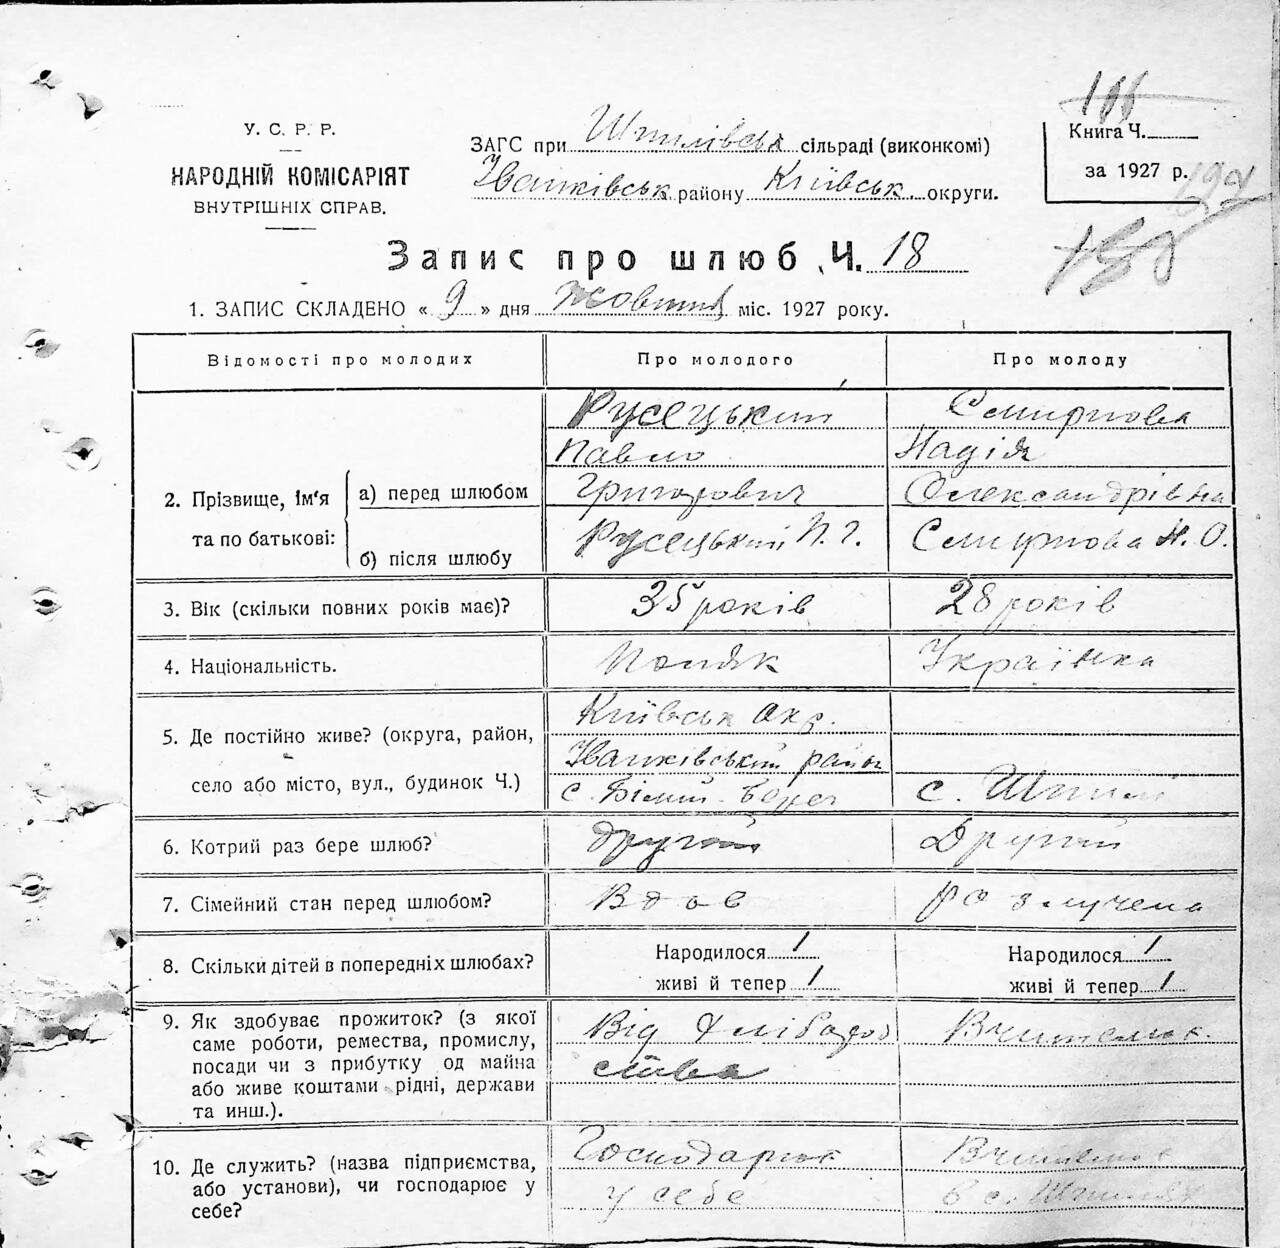 166
У. С. Р. Р.
НАРОДНІЙ КОМІСАРІЯТ
ВНУТРІШНІХ СПРАВ.
ЗАГС при Шпилівськ сільраді (виконкомі)
Іванківськ району Київськ. округи.
Книга Ч.
за 1927 р.
Запис про шлюб Ч. 18
1. ЗАПИС СКЛАДЕНО « 9 » дня Жовтня міс. 1927 року.
Відомості про молодих Про молодого Про молоду
2. Прізвище, ім'я та по батькові:
а) перед шлюбом
Русецький Смирнова
Павло Надія
Григорович Олександрівна
б) після шлюбу Русецький П. Г. Смирнова Н. О.
3. Вік (скільки повних років має)? 35 років 28 років
4. Національність. Поляк Українка
5. Де постійно живе? (округа, район,
село або місто, вул., будинок Ч.)
Київськ окр.
Іванківський район
с. Білий-Берег с. Шпилі
6. Котрий раз бере шлюб? другий Другий
7. Сімейний стан перед шлюбом? Вдов розлучена
8. Скільки дітей в попередніх шлюбах? Народилося 1 Народилося 1
живі й тепер 1 живі й тепер 1
9. Як здобуває прожиток? (з якої
саме роботи, ремества, промислу,
посади чи з прибутку од майна
або живе коштами рідні, держави
та инш.).
Від Хлібороб
ства
Вчителюк.
10. Де служить? (назва підприємства,
або установи), чи господарює у
себе?
Господарює
у себе
Вчителює
в с. Шпилях